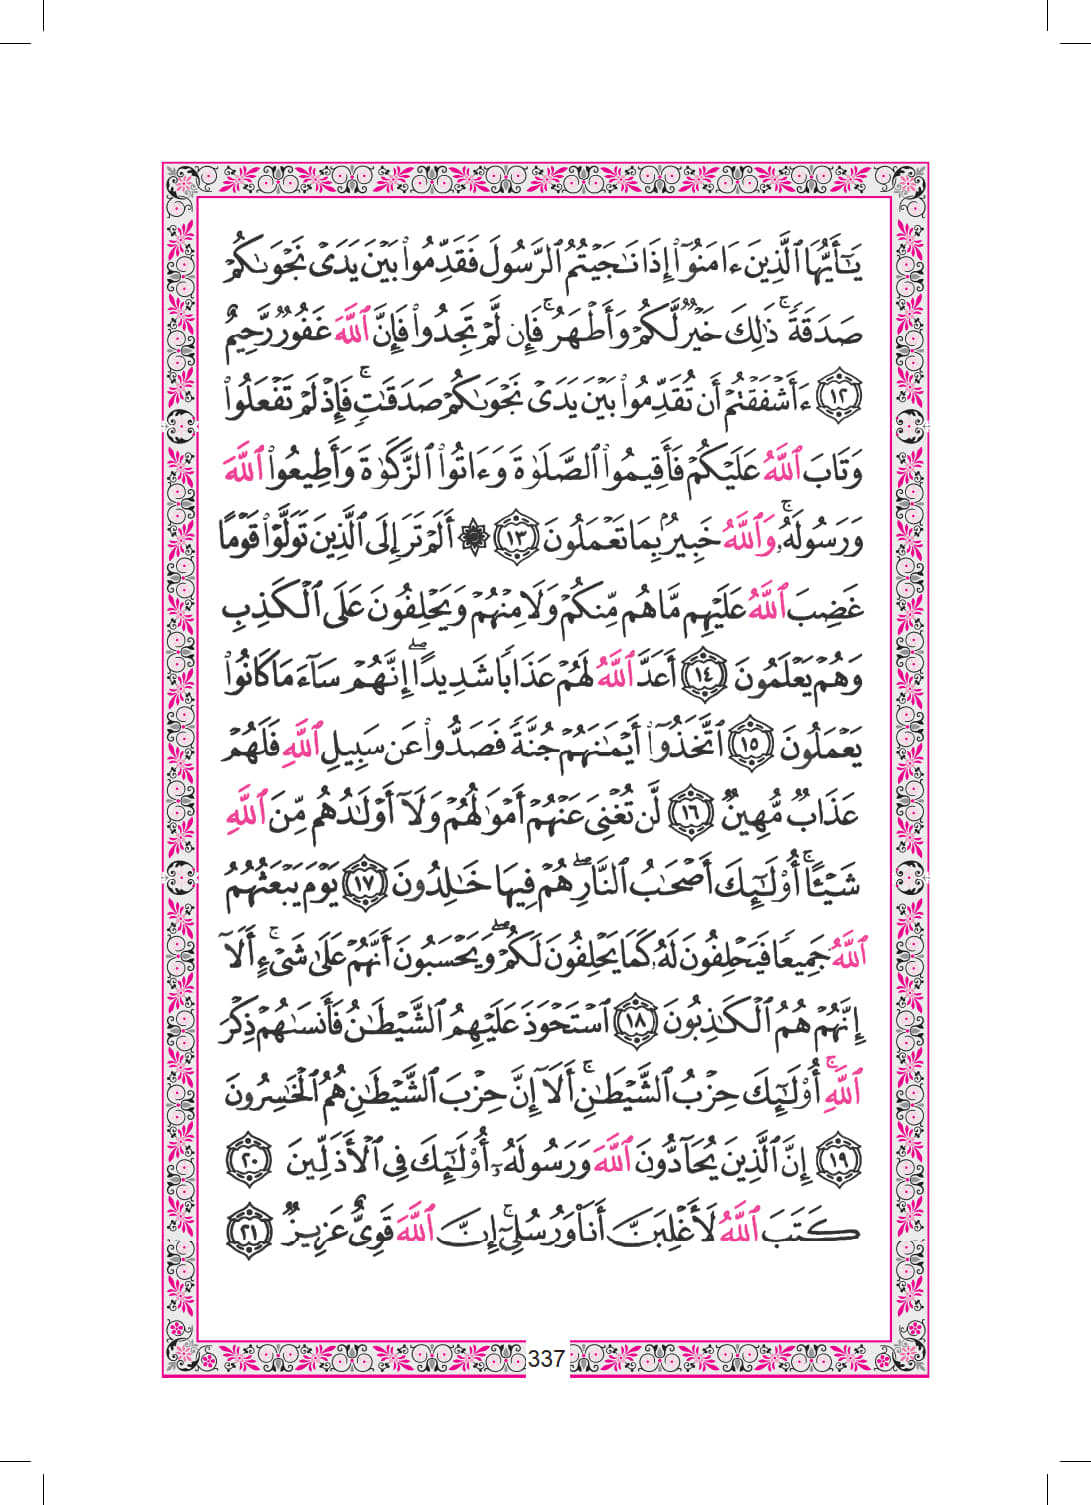 يَٰٓأَيُّهَا ٱلَّذِينَ ءَامَنُوٓا۟ إِذَا نَٰجَيْتُمُ ٱلرَّسُولَ فَقَدِّمُوا۟ بَيْنَ يَدَىْ نَجْوَىٰكُمْ
صَدَقَةً ۚ ذَٰلِكَ خَيْرٌ لَّكُمْ وَأَطْهَرُ ۚ فَإِن لَّمْ تَجِدُوا۟ فَإِنَّ ٱللَّهَ غَفُورٌ رَّحِيمٌ
﴿١٢﴾ ءَأَشْفَقْتُمْ أَن تُقَدِّمُوا۟ بَيْنَ يَدَىْ نَجْوَىٰكُمْ صَدَقَٰتٍ ۚ فَإِذْ لَمْ تَفْعَلُوا۟
وَتَابَ ٱللَّهُ عَلَيْكُمْ فَأَقِيمُوا۟ ٱلصَّلَوٰةَ وَءَاتُوا۟ ٱلزَّكَوٰةَ وَأَطِيعُوا۟ ٱللَّهَ
وَرَسُولَهُۥ ۚ وَٱللَّهُ خَبِيرٌۢ بِمَا تَعْمَلُونَ ﴿١٣﴾ ۞ أَلَمْ تَرَ إِلَى ٱلَّذِينَ تَوَلَّوْا۟ قَوْمًا
غَضِبَ ٱللَّهُ عَلَيْهِم مَّا هُم مِّنكُمْ وَلَا مِنْهُمْ وَيَحْلِفُونَ عَلَى ٱلْكَذِبِ
وَهُمْ يَعْلَمُونَ ﴿١٤﴾ أَعَدَّ ٱللَّهُ لَهُمْ عَذَابًا شَدِيدًا ۖ إِنَّهُمْ سَآءَ مَا كَانُوا۟
يَعْمَلُونَ ﴿١٥﴾ ٱتَّخَذُوٓا۟ أَيْمَٰنَهُمْ جُنَّةً فَصَدُّوا۟ عَن سَبِيلِ ٱللَّهِ فَلَهُمْ
عَذَابٌ مُّهِينٌ ﴿١٦﴾ لَّن تُغْنِىَ عَنْهُمْ أَمْوَٰلُهُمْ وَلَآ أَوْلَٰدُهُم مِّنَ ٱللَّهِ
شَيْـًٔا ۚ أُو۟لَٰٓئِكَ أَصْحَٰبُ ٱلنَّارِ ۖ هُمْ فِيهَا خَٰلِدُونَ ﴿١٧﴾ يَوْمَ يَبْعَثُهُمُ
ٱللَّهُ جَمِيعًا فَيَحْلِفُونَ لَهُۥ كَمَا يَحْلِفُونَ لَكُمْ ۖ وَيَحْسَبُونَ أَنَّهُمْ عَلَىٰ شَىْءٍ ۚ أَلَآ
إِنَّهُمْ هُمُ ٱلْكَٰذِبُونَ ﴿١٨﴾ ٱسْتَحْوَذَ عَلَيْهِمُ ٱلشَّيْطَٰنُ فَأَنسَىٰهُمْ ذِكْرَ
ٱللَّهِ ۚ أُو۟لَٰٓئِكَ حِزْبُ ٱلشَّيْطَٰنِ ۚ أَلَآ إِنَّ حِزْبَ ٱلشَّيْطَٰنِ هُمُ ٱلْخَٰسِرُونَ
﴿١٩﴾ إِنَّ ٱلَّذِينَ يُحَآدُّونَ ٱللَّهَ وَرَسُولَهُۥٓ أُو۟لَٰٓئِكَ فِى ٱلْأَذَلِّينَ ﴿٢٠﴾
كَتَبَ ٱللَّهُ لَأَغْلِبَنَّ أَنَا۠ وَرُسُلِىٓ ۚ إِنَّ ٱللَّهَ قَوِىٌّ عَزِيزٌ ﴿٢١﴾
337